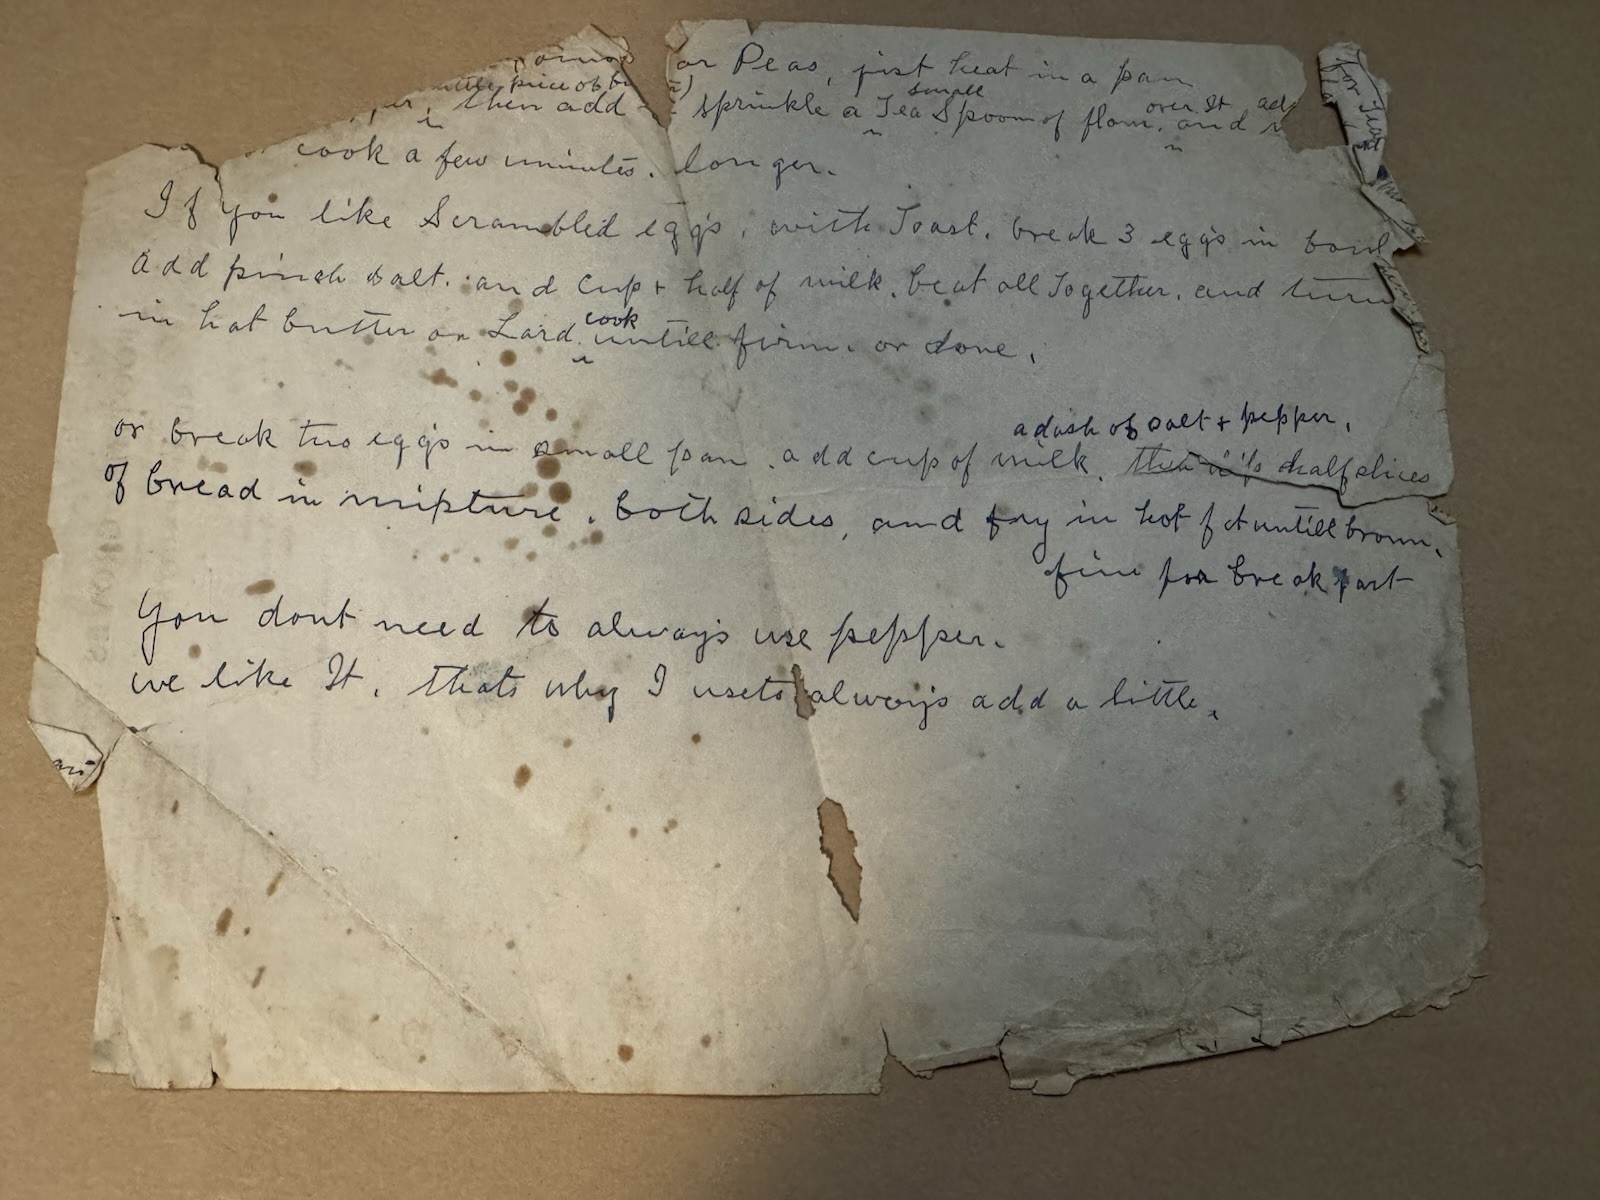 or Peas, just heat in a pan
little piece of
then add sprinkle a small Tea Spoon of flour, over It and
cook a few minutes. longer.
If you like Scrambled eggs, with Toast. break 3 eggs in bowl
Add pinch salt. and cup + half of milk. beat all Together. and turn
in hot butter or Lard. cook untill firm. or done.
or break two eggs in small pan. add cup of milk. a dash of salt + pepper.
half slices
of bread in mixture. both sides, and fry in hot fat untill brown.
fine for breakfast
You dont need to always use pepper.
we like It. thats why I usets always add a little.